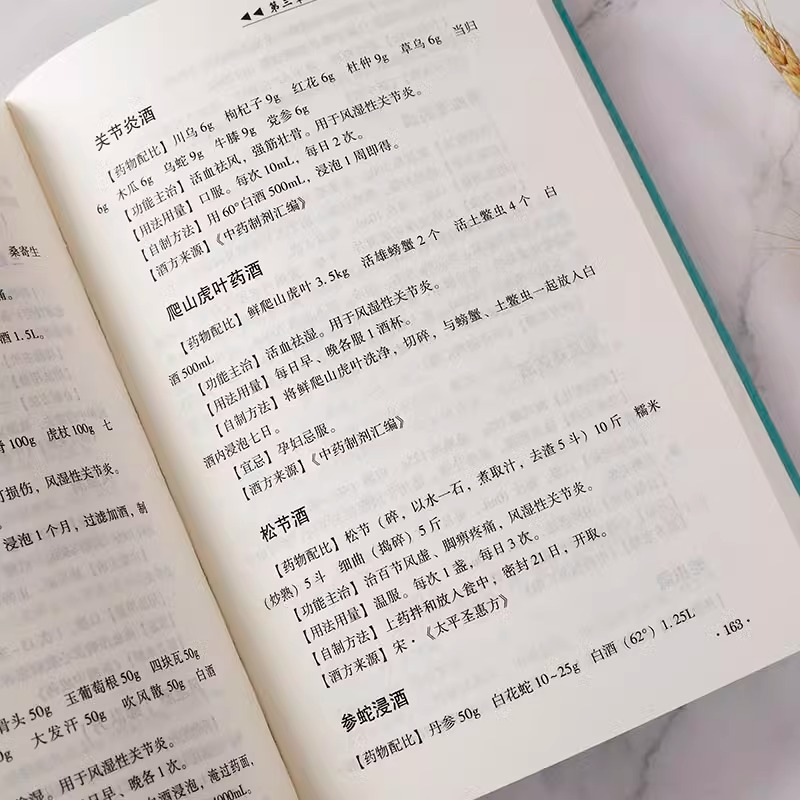 桑寄生
痛。
酒 1.5L。
骨 100g 虎杖 100g 七
打损伤，风湿性关节炎。
浸泡 1 个月，过滤加酒，制
骨头 50g 玉葡萄根 50g 四块瓦 50g
0g 大发汗 50g 吹风散 50g 白酒
除湿。用于风湿性关节炎。
每日早、晚各 1 次。
白酒浸泡，淹过药面，
4000mL。
◀◀ 第三章
关节炎酒
【药物配比】川乌 6g 枸杞子 9g 红花 6g 杜仲 9g 草乌 6g 当归
6g 木瓜 6g 乌蛇 9g 牛膝 9g 党参 6g
【功能主治】活血祛风，强筋壮骨。用于风湿性关节炎。
【用法用量】口服。每次 10mL，每日 2 次。
【自制方法】用 60°白酒 500mL，浸泡 1 周即得。
【酒方来源】《中药制剂汇编》
爬山虎叶药酒
【药物配比】鲜爬山虎叶 3.5kg 活雄螃蟹 2 个 活土鳖虫 4 个 白
酒 500mL
【功能主治】活血祛湿。用于风湿性关节炎。
【用法用量】每日早、晚各服 1 酒杯。
【自制方法】将鲜爬山虎叶洗净，切碎，与螃蟹、土鳖虫一起放入白
酒内浸泡七日。
【宜忌】孕妇忌服。
【酒方来源】《中药制剂汇编》
松节酒
【药物配比】松节（碎，以水一石，煮取汁，去渣 5 斗）10 斤 糯米
（炒熟）5 斗 细曲（捣碎）5 斤
【功能主治】治百节风虚、脚痹疼痛，风湿性关节炎。
【用法用量】温服。每次 1 盏，每日 3 次。
【自制方法】上药拌和放入瓮中，密封 21 日，开取。
【酒方来源】宋·《太平圣惠方》
参蛇浸酒
【药物配比】丹参 50g 白花蛇 10~25g 白酒（62°）1.25L
·163·